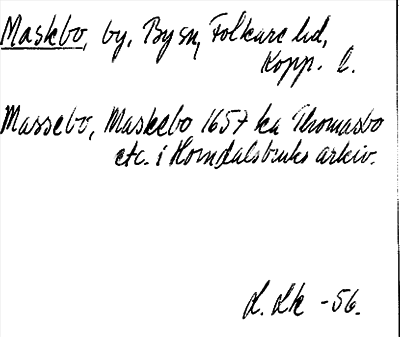 Maskebo, by, By sn, Folkare hd,
Kopp. l.
Massebo, Maskebo 1657 ka Thomasbo
etc. i Horndalsbruks arkiv.
-56.